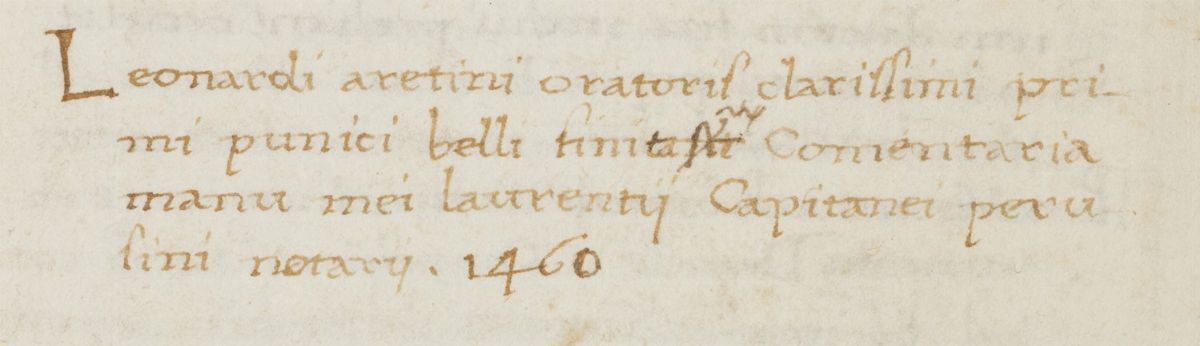 Leonardi aretini oratoris clarissimi pri-
mi punici belli finita sūt Comentaria
manu mei laurentij Capitanei peru
sini notarij. 1460